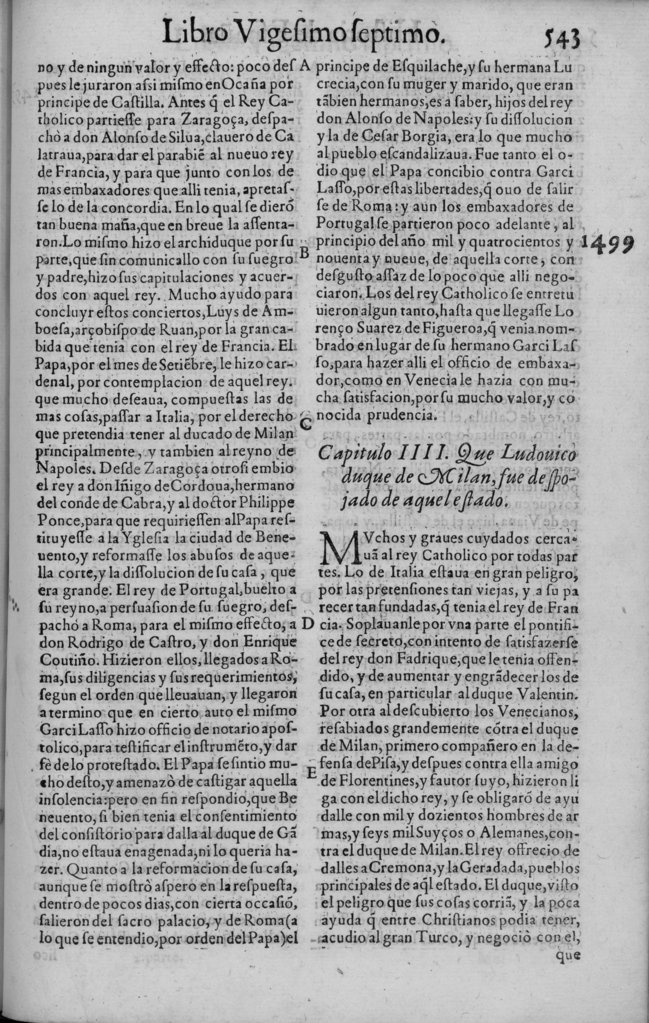 Libro Vigesimo septimo. 543
no y de ningun valor y effecto: poco des
pues le juraron assi mismo en Ocaña por
principe de Castilla. Antes q̃ el Rey Ca-
tholico partiesse para Zaragoça, despa-
chò a don Alonso de Silua, clauero de Ca
latraua, para dar el parabiẽ al nueuo rey
de Francia, y para que junto con los de
mas embaxadores que alli tenia, apretas-
se lo de la concordia. En lo qual se dierõ
tan buena maña, que en breue la assenta-
ron. Lo mismo hizo el archiduque por su
parte, que sin comunicallo con su suegro
y padre, hizo sus capitulaciones y acuer-
dos con aquel rey. Mucho ayudo para
concluyr estos conciertos, Luys de Am-
boesa, arçobispo de Ruan, por la gran ca-
bida que tenia con el rey de Francia. El
Papa, por el mes de Setiẽbre, le hizo car-
denal, por contemplacion de aquel rey.
que mucho deseaua, compuestas las de
mas cosas, passar a Italia, por el derecho
que pretendia tener al ducado de Milan
principalmente, y tambien al reyno de
Napoles. Desde Zaragoça otrosi embio
el rey a don Iñigo de Cordoua, hermano
del conde de Cabra, y al doctor Philippe
Ponce, para que requiriessen al Papa res-
tituyesse a la Yglesia la ciudad de Bene-
uento, y reformasse los abusos de aque-
lla corte, y la dissolucion de su casa, que
era grande. El rey de Portugal, buelto a
su reyno, a persuasion de su suegro, des-
pachó a Roma, para el mismo effecto, a
don Rodrigo de Castro, y don Enrique
Coutiño. Hizieron ellos, llegados a Ro-
ma, sus diligencias y sus requerimientos,
segun el orden que lleuauan, y llegaron
a termino que en cierto auto el mismo
Garci Lasso hizo officio de notario apos-
tolico, para testificar el instrumẽto, y dar
fè de lo protestado. El Papa se sintio mu-
cho desto, y amenazò de castigar aquella
insolencia: pero en fin respondio, que Be
neuento, si bien tenia el consentimiento
del consistorio para dalla al duque de Gã
dia, no estaua enagenada, ni lo queria ha-
zer. Quanto a la reformacion de su casa,
aunque se mostrò aspero en la respuesta,
dentro de pocos dias, con cierta occasiõ,
salieron del sacro palacio, y de Roma (a
lo que se entendio, por orden del Papa) el
A
B
C
D
E
principe de Esquilache, y su hermana Lu
crecia, con su muger y marido, que eran
tãbien hermanos, es a saber, hijos del rey
don Alonso de Napoles: y su dissolucion
y la de Cesar Borgia, era lo que mucho
al pueblo escandalizaua. Fue tanto el o-
dio que el Papa concibio contra Garci
Lasso, por estas libertades, q̃ ouo de salir
se de Roma: y aun los embaxadores de
Portugal se partieron poco adelante, al
principio del año mil y quatrocientos y
1499
nouenta y nueue, de aquella corte, con
desgusto assaz de lo poco que alli nego-
ciaron. Los del rey Catholico se entretu
uieron algun tanto, hasta que llegasse Lo
renço Suarez de Figueroa, q̃ venia nom-
brado en lugar de su hermano Garci Las
so, para hazer alli el officio de embaxa-
dor, como en Venecia le hazia con mu-
cha satisfacion, por su mucho valor, y co
nocida prudencia.
Capitulo IIII. Que Ludouico
duque de Milan, fue despo-
jado de aquel estado.
MVchos y graues cuydados cerca-
uã al rey Catholico por todas par
tes. Lo de Italia estaua en gran peligro,
por las pretensiones tan viejas, y a su pa
recer tan fundadas, q̃ tenia el rey de Fran
cia. Soplauanle por vna parte el pontifi-
ce de secreto, con intento de satisfazerse
del rey don Fadrique, que le tenia offen-
dido, y de aumentar y engrãdecer los de
su casa, en particular al duque Valentin.
Por otra al descubierto los Venecianos,
resabiados grandemente cõtra el duque
de Milan, primero compañero en la de-
fensa de Pisa, y despues contra ella amigo
de Florentines, y fautor suyo, hizieron li
ga con el dicho rey, y se obligarõ de ayu
dalle con mil y dozientos hombres de ar
mas, y seys mil Suyços o Alemanes, con-
tra el duque de Milan. El rey offrecio de
dalles a Cremona, y la Geradada, pueblos
principales de aq̃l estado. El duque, visto
el peligro que sus cosas corriã, y la poca
ayuda q̃ entre Christianos podia tener,
acudio al gran Turco, y negociò con el,
que